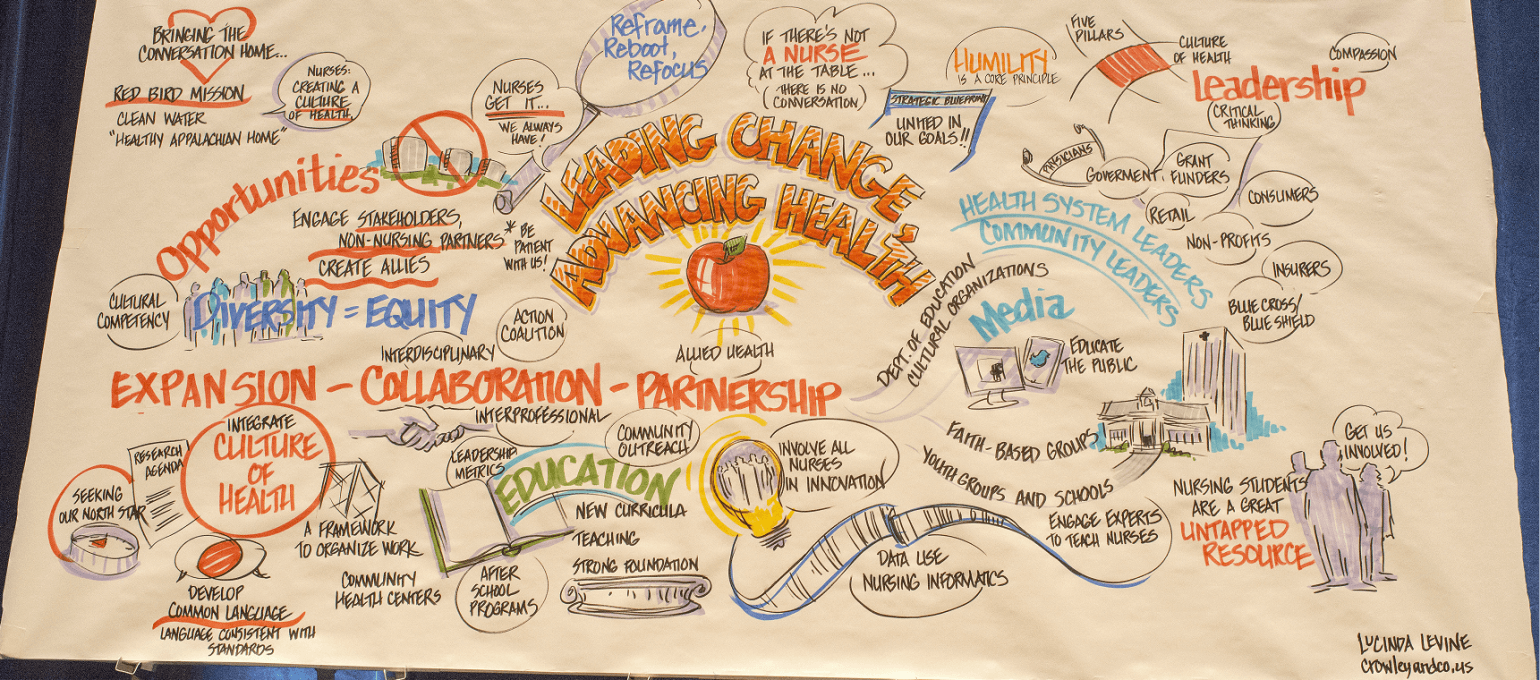 BRINGING THE
CONVERSATION HOME...
RED BIRD MISSION
CLEAN WATER
"HEALTHY APPALACHIAN HOME"
NURSES:
CREATING A
CULTURE
OF HEALTH
NURSES
GET IT...
WE ALWAYS
HAVE!
Reframe,
Reboot,
Refocus
IF THERE'S NOT
A NURSE
AT THE TABLE...
THERE IS NO
CONVERSATION
HUMILITY
IS A CORE PRINCIPLE
STRATEGIC BLUEPRINT
UNITED IN
OUR GOALS!!
FIVE
PILLARS
CULTURE
OF HEALTH
COMPASSION
Leadership
CRITICAL
THINKING
LEADING CHANGE,
ADVANCING HEALTH
Opportunities
ENGAGE STAKEHOLDERS,
NON-NURSING PARTNERS
CREATE ALLIES
* BE
PATIENT
WITH US!
CULTURAL
COMPETENCY
DIVERSITY = EQUITY
ACTION
COALITION
INTERDISCIPLINARY
ALLIED HEALTH
PHYSICIANS
GOVERMENT
GRANT
FUNDERS
CONSUMERS
RETAIL
NON-PROFITS
INSURERS
BLUE CROSS/
BLUE SHIELD
HEALTH SYSTEM LEADERS
COMMUNITY LEADERS
DEPT. OF EDUCATION
CULTURAL ORGANIZATIONS
Media
EDUCATE
THE PUBLIC
EXPANSION - COLLABORATION - PARTNERSHIP
INTEGRATE
CULTURE
OF
HEALTH
RESEARCH
AGENDA
SEEKING
OUR NORTH STAR
A FRAMEWORK
TO ORGANIZE WORK
DEVELOP
COMMON LANGUAGE
LANGUAGE CONSISTENT WITH
STANDARDS
INTERPROFESSIONAL
LEADERSHIP
METRICS
COMMUNITY
OUTREACH
EDUCATION
NEW CURRICULA
TEACHING
STRONG FOUNDATION
COMMUNITY
HEALTH CENTERS
AFTER
SCHOOL
PROGRAMS
INVOLVE ALL
NURSES
IN INNOVATION
DATA USE
NURSING INFORMATICS
FAITH-BASED GROUPS
YOUTH GROUPS AND SCHOOLS
ENGAGE EXPERTS
TO TEACH NURSES
GET US
INVOLVED!
NURSING STUDENTS
ARE A GREAT
UNTAPPED
RESOURCE
LUCINDA LEVINE
crowleyandco.us